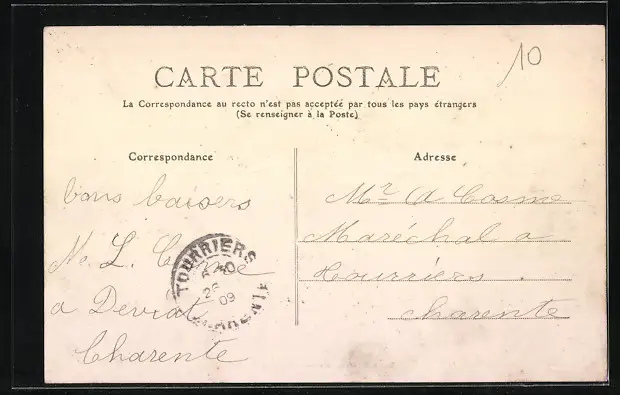 10
CARTE POSTALE
La Correspondance au recto n'est pas acceptée par tous les pays étrangers
(Se renseigner à la Poste)
Correspondance
Adresse
bons baisers
L.
a Deviat
Charente
Mr A Cosme
Maréchal a
Tourriers.
charente
TOURRIERS
26
09